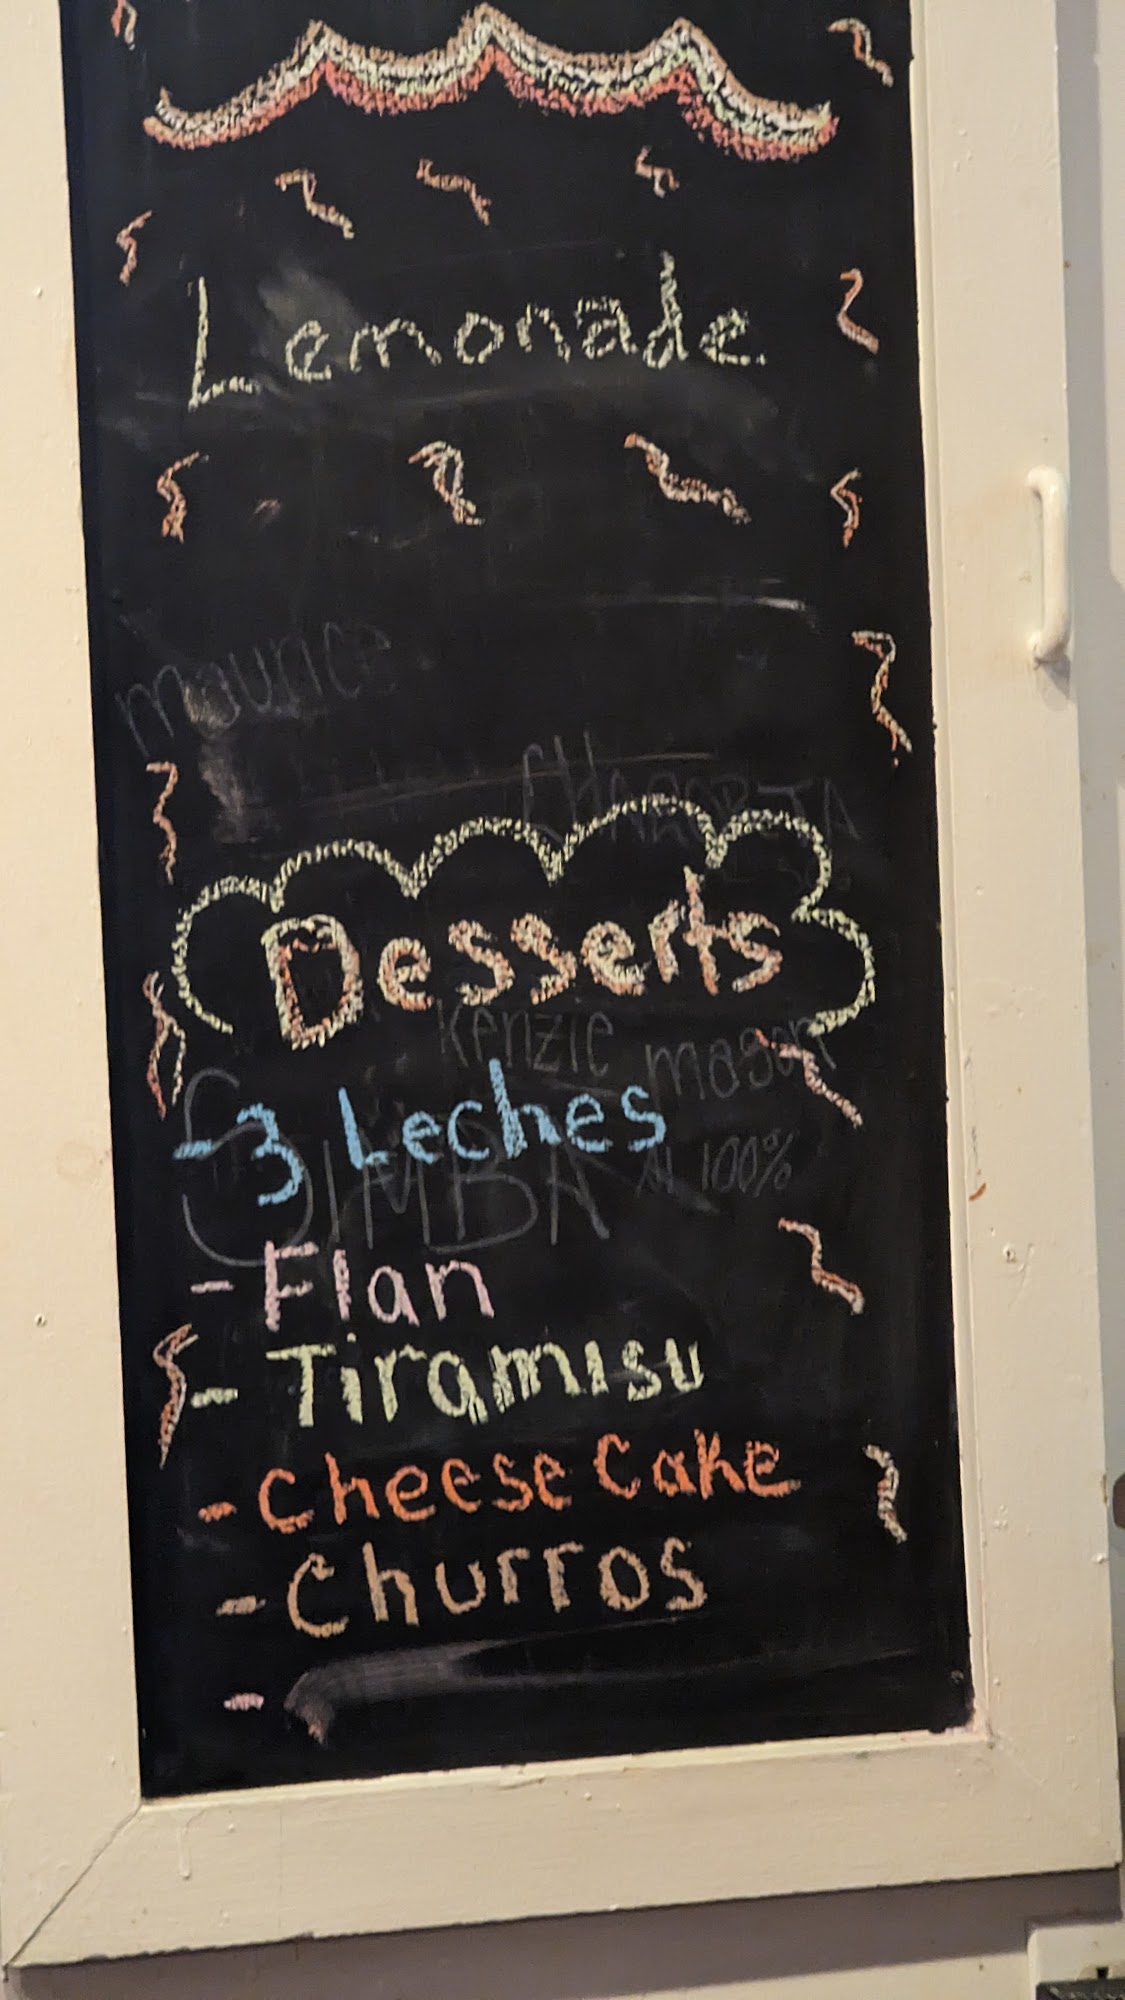 Lemonade
maurice
Desserts
Kenzie mason
- 3 Leches
SIMBA 100%
- Flan
- Tiramisu
- Cheese Cake
- Churros
-